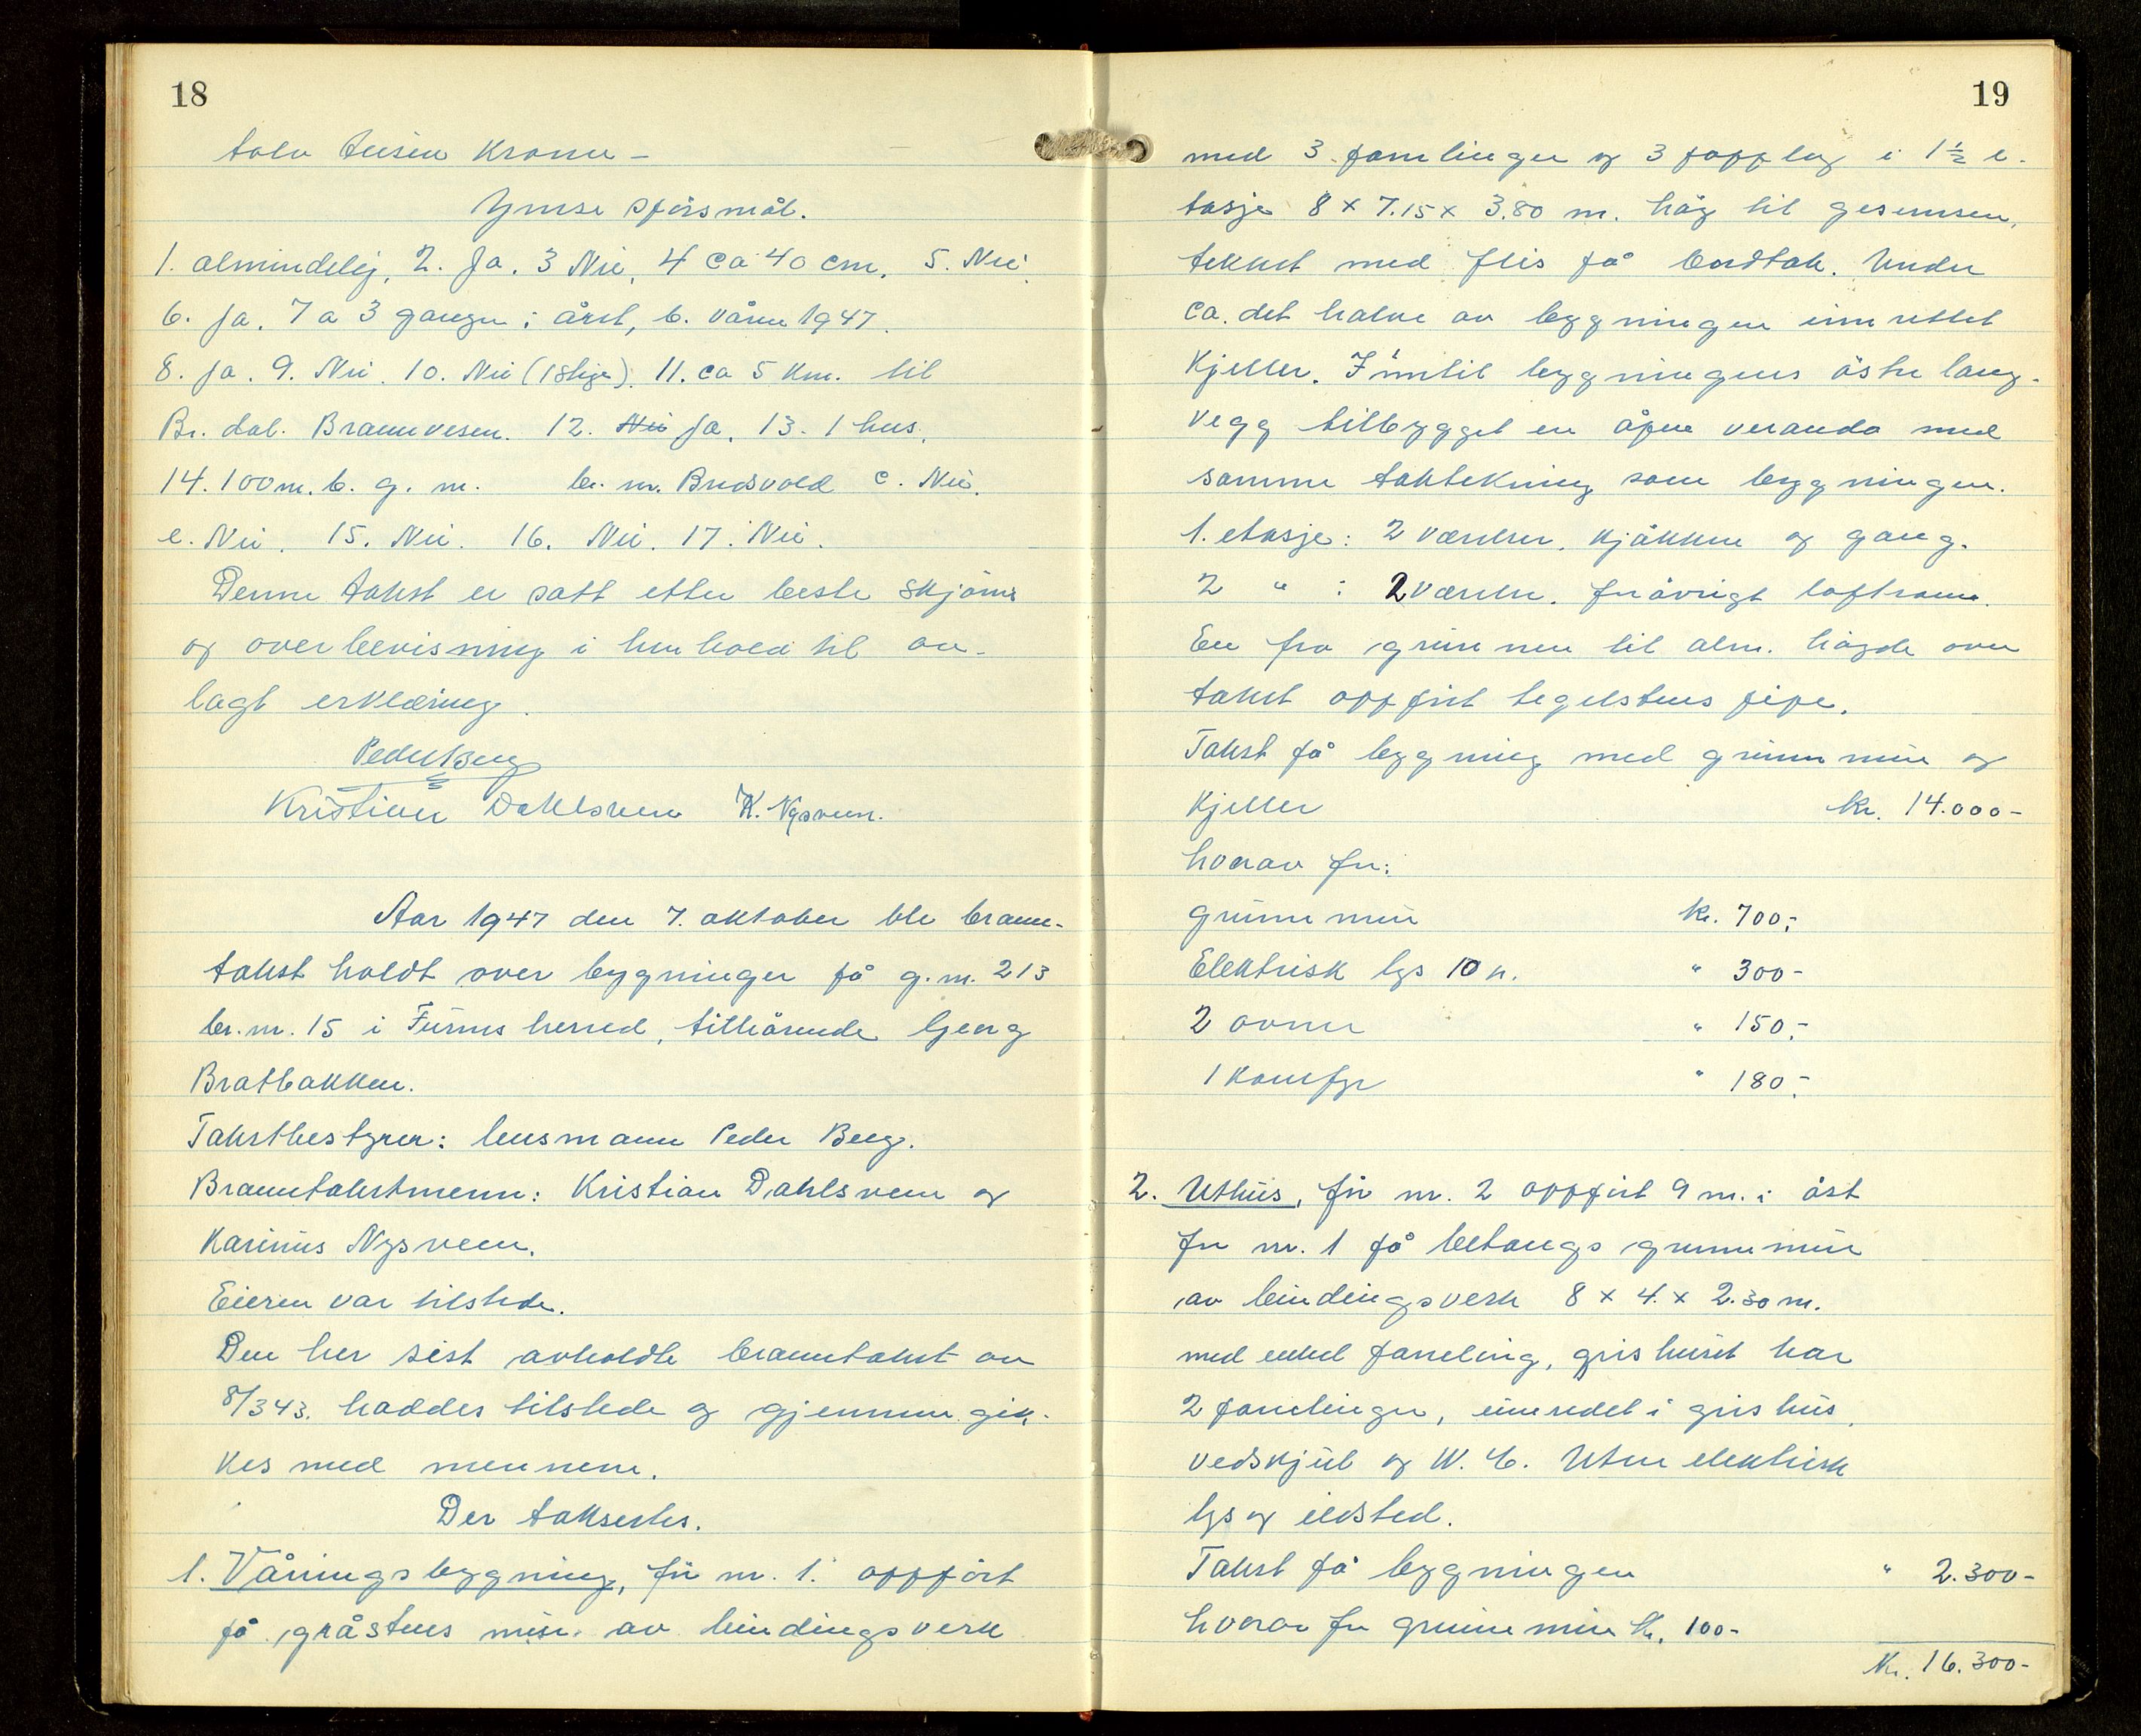 18
tolv tusen Kroner –
Ymse spørsmål.
1. almindelig, 2. Ja. 3 Nei, 4 ca 40 cm. 5. Nei.
6. Ja. 7 a 3 ganger i året, b. våren 1947.
8. Ja. 9. Nei. 10. Nei (1 stige). 11. ca 5 Km. til
Br. dal. Brannvesen. 12. Nei Ja. 13. 1 hus.
14. 100 m. b. g. nr. br. nr. Bredsvold c. Nei.
e. Nei. 15. Nei. 16. Nei. 17. Nei.
Denne takst er satt etter beste skjønn
og overbevisning i henhold til av-
lagt erklæring.
Peder Berg
Kristian Dahlsveen K. Nysveen.
Aar 1947 den 7. oktober ble brann-
takst holdt over bygninger på g.nr. 213
br.nr. 15 i Furnes herred, tilhørende Georg
Bratbakken.
Takstbestyrer: lensmann Peder Berg.
Branntakstmenn: Kristian Dahlsveen og
Karinius Nysveen.
Eieren var tilstede.
Den her sist avholdte branntakst av
8/3 43. haddes tilstede og gjennemgik-
kes med mennene.
Der taksertes.
1. Våningsbygning, før nr. 1. oppført
på gråstens mur av bindingsverk
19
med 3 panelinger og 3 papplag i 1½ e-
tasje 8 x 7.15 x 3.80 m. høg til gesemsen,
tekket med flis på bordtak. Under
ca. det halve av bygningen innrettet
Kjeller. Inntil bygningens østre lang-
vegg tilbygget en åpen veranda med
samme taktekning som bygningen.
1. etasje: 2 værelser, kjøkken og gang.
2 " : 2 værelser, forøvrigt loftsrom.
En fra grunnen til alm. høgde over
taket oppført tegelstens pipe.
Takst på bygning med grunnmur og
Kjeller Kr. 14.000-
hvorav for:
grunnmur kr. 700,-
Elektrisk lys 10 p. " 300-
2 ovner " 150,-
1 Komfyr " 180,-
2. Uthus, før nr. 2 oppført 9 m. i øst
for nr. 1 på betongs grunnmur
av bindingsverk 8 x 4 x 2.30 m.
med enkel paneling, grishuset har
2 panelinger, innredet i grishus,
vedskjul og W. C. Uten elektrisk
lys og ildsted.
Takst på bygningen " 2.300-
hvorav for grunnmur Kr. 100-
Kr. 16.300-